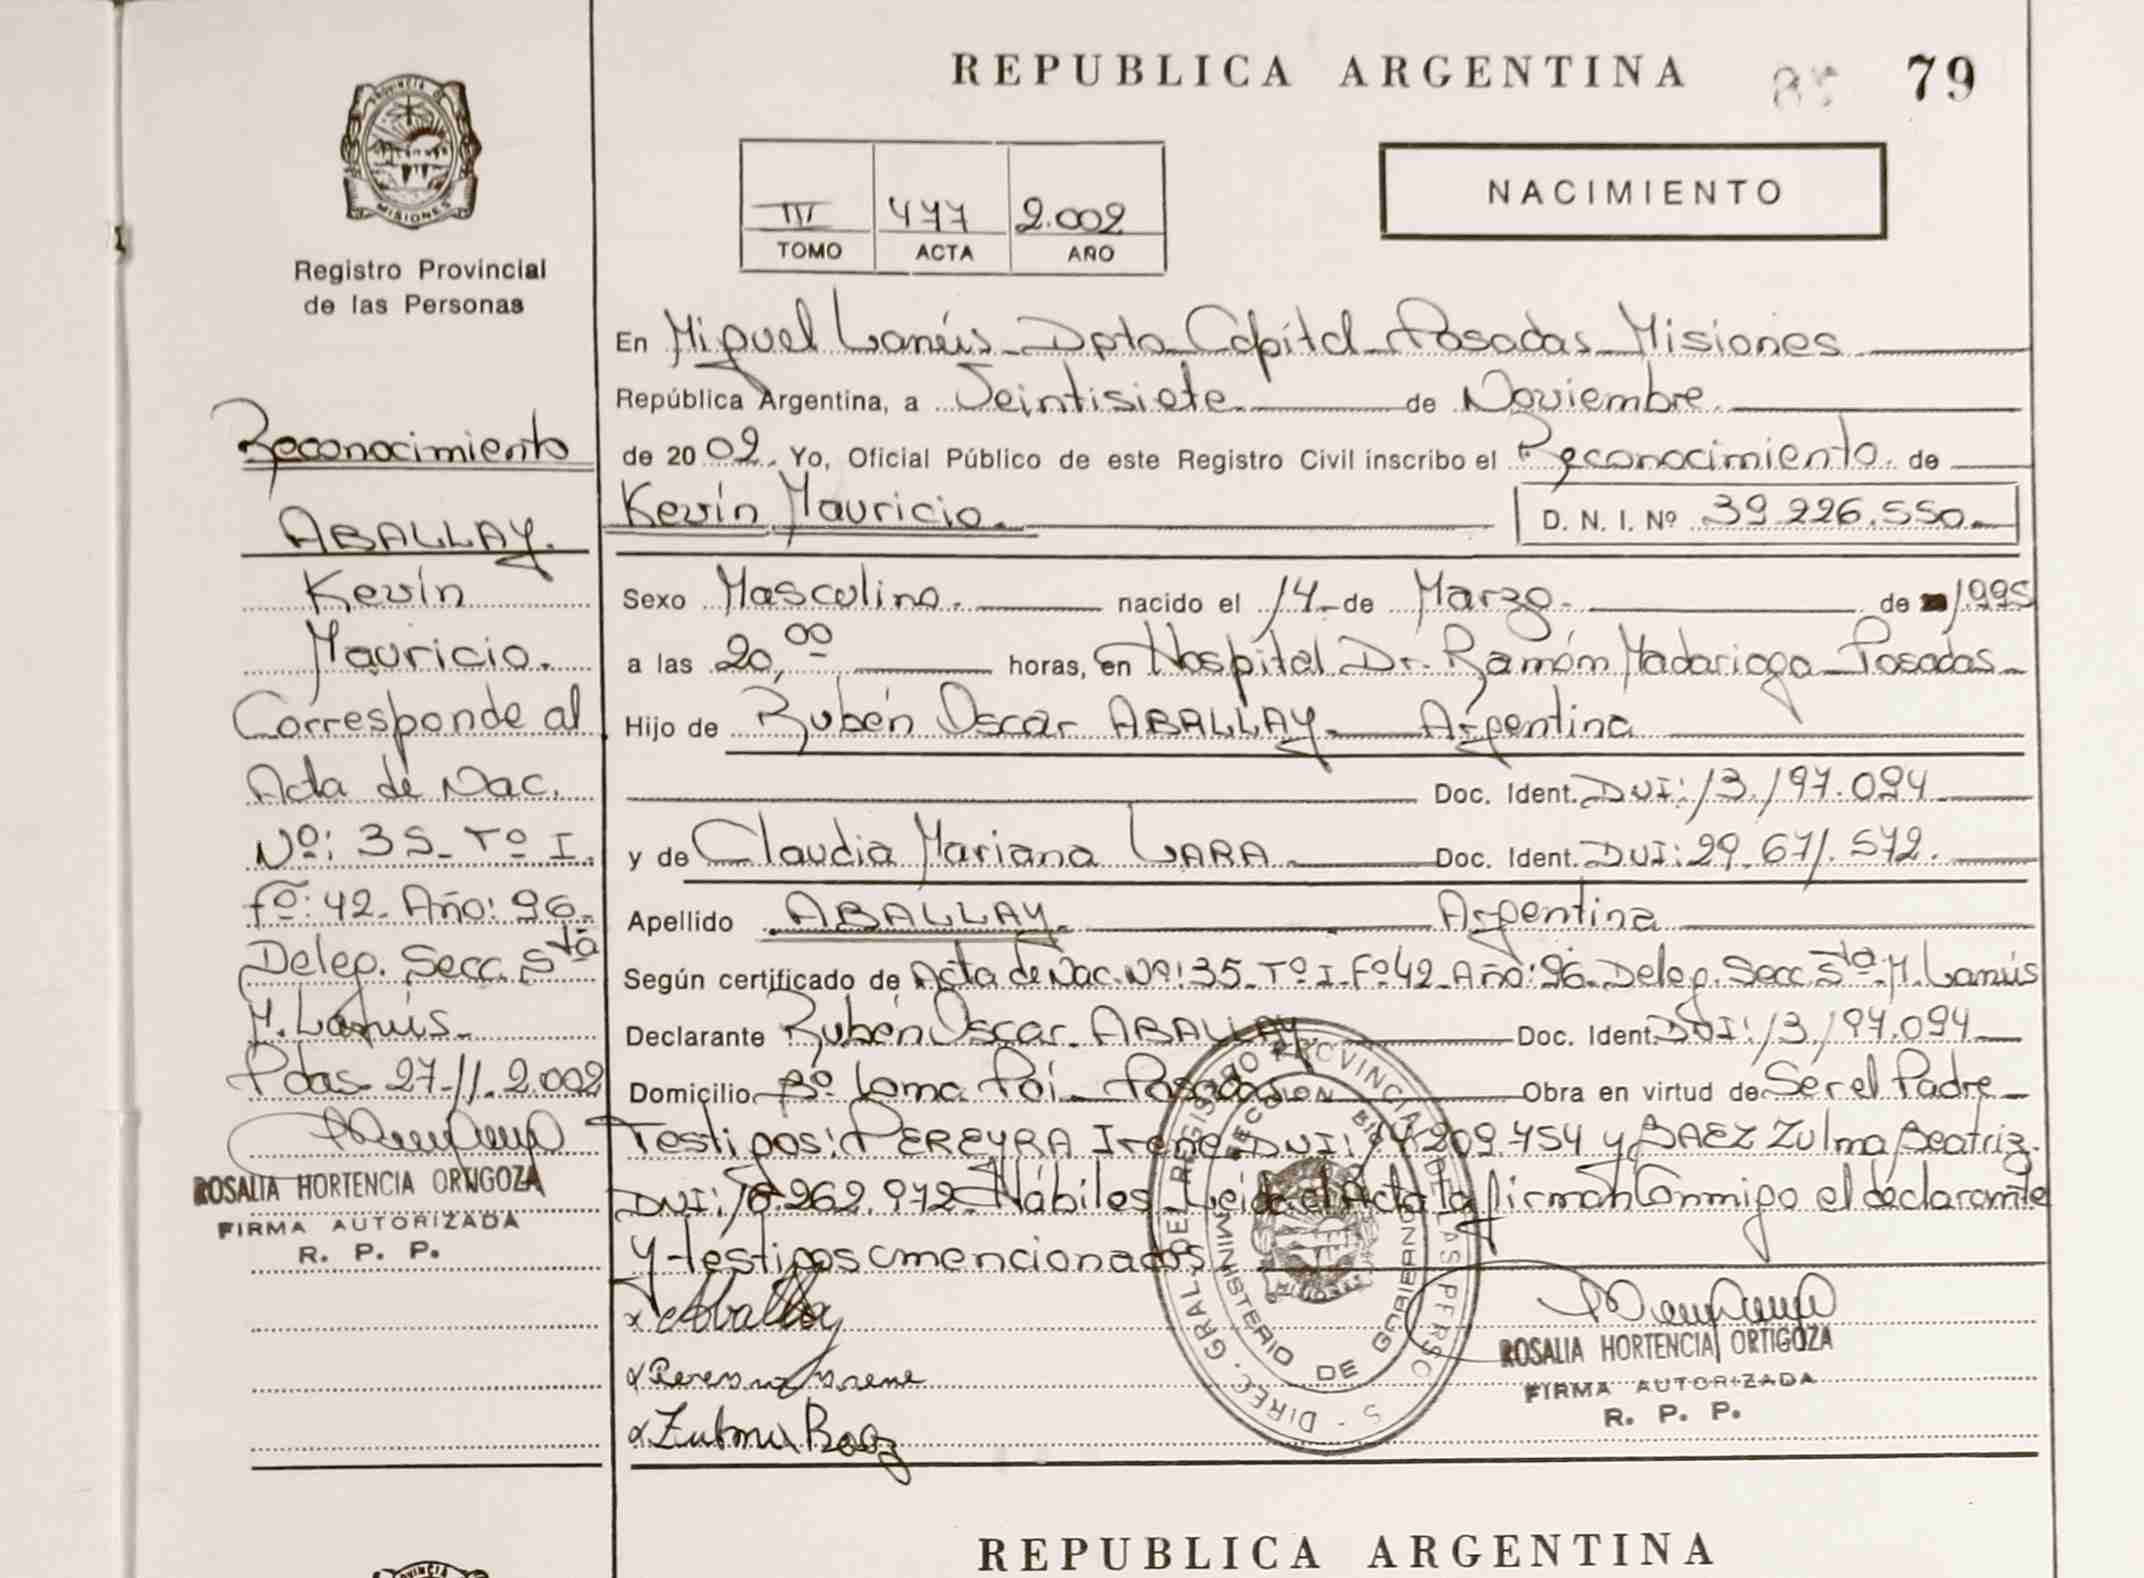 REPUBLICA ARGENTINA
79
PROVINCIA DE
MISIONES
Registro Provincial
de las Personas
NACIMIENTO
III 477 2.002
TOMO ACTA AÑO
Reconocimiento
ABALLAY.
Kevín
Mauricio.
Corresponde al
Acta de Nac.
Nº: 35- Tº I.
fº: 42- Año: 96-
Deleg. Secc. 5ta
M. Lanús-
Pdas- 27-11-2.002
ROSALIA HORTENCIA ORTIGOZA
FIRMA AUTORIZADA
R. P. P.
En Miguel Lanús- Dpto Capital- Posadas- Misiones
República Argentina, a Veintisiete de Noviembre
de 2002. Yo, Oficial Público de este Registro Civil inscribo el Reconocimiento de
Kevín Mauricio.
D. N. I. Nº 39.226.550-
Sexo Masculino. nacido el 14- de Marzo- de 1.995
a las 20,00 horas, en Hospital Dr. Ramón Madariaga- Posadas-
Hijo de Rubén Oscar ABALLAY- Argentina
Doc. Ident. DNI: 13.197.094
y de Claudia Mariana LARA Doc. Ident. DNI: 29.671.572.
Apellido ABALLAY Argentina
Según certificado de Acta de Nac. Nº: 35- Tº I- Fº 42- Año: 96- Deleg. Secc. 5ta- M. Lanús
Declarante Rubén Oscar ABALLAY Doc. Ident. DNI: 13.197.094
Domicilio Bº Loma Poí- Posadas Obra en virtud de Ser el Padre-
Testigos: PEREYRA Irene DNI: 209.454 y BAEZ Zulma Beatriz-
DNI: 262.972- Hábiles- Leída el Acta la firman Conmigo el declarante
y testigos mencionados
Aballay
Irene
Zulma Baez
DIREC. GRAL. DE REGISTRO PROVINCIAL DE LAS PERSONAS
MINISTERIO DE GOBIERNO
ROSALIA HORTENCIA ORTIGOZA
FIRMA AUTORIZADA
R. P. P.
REPUBLICA ARGENTINA